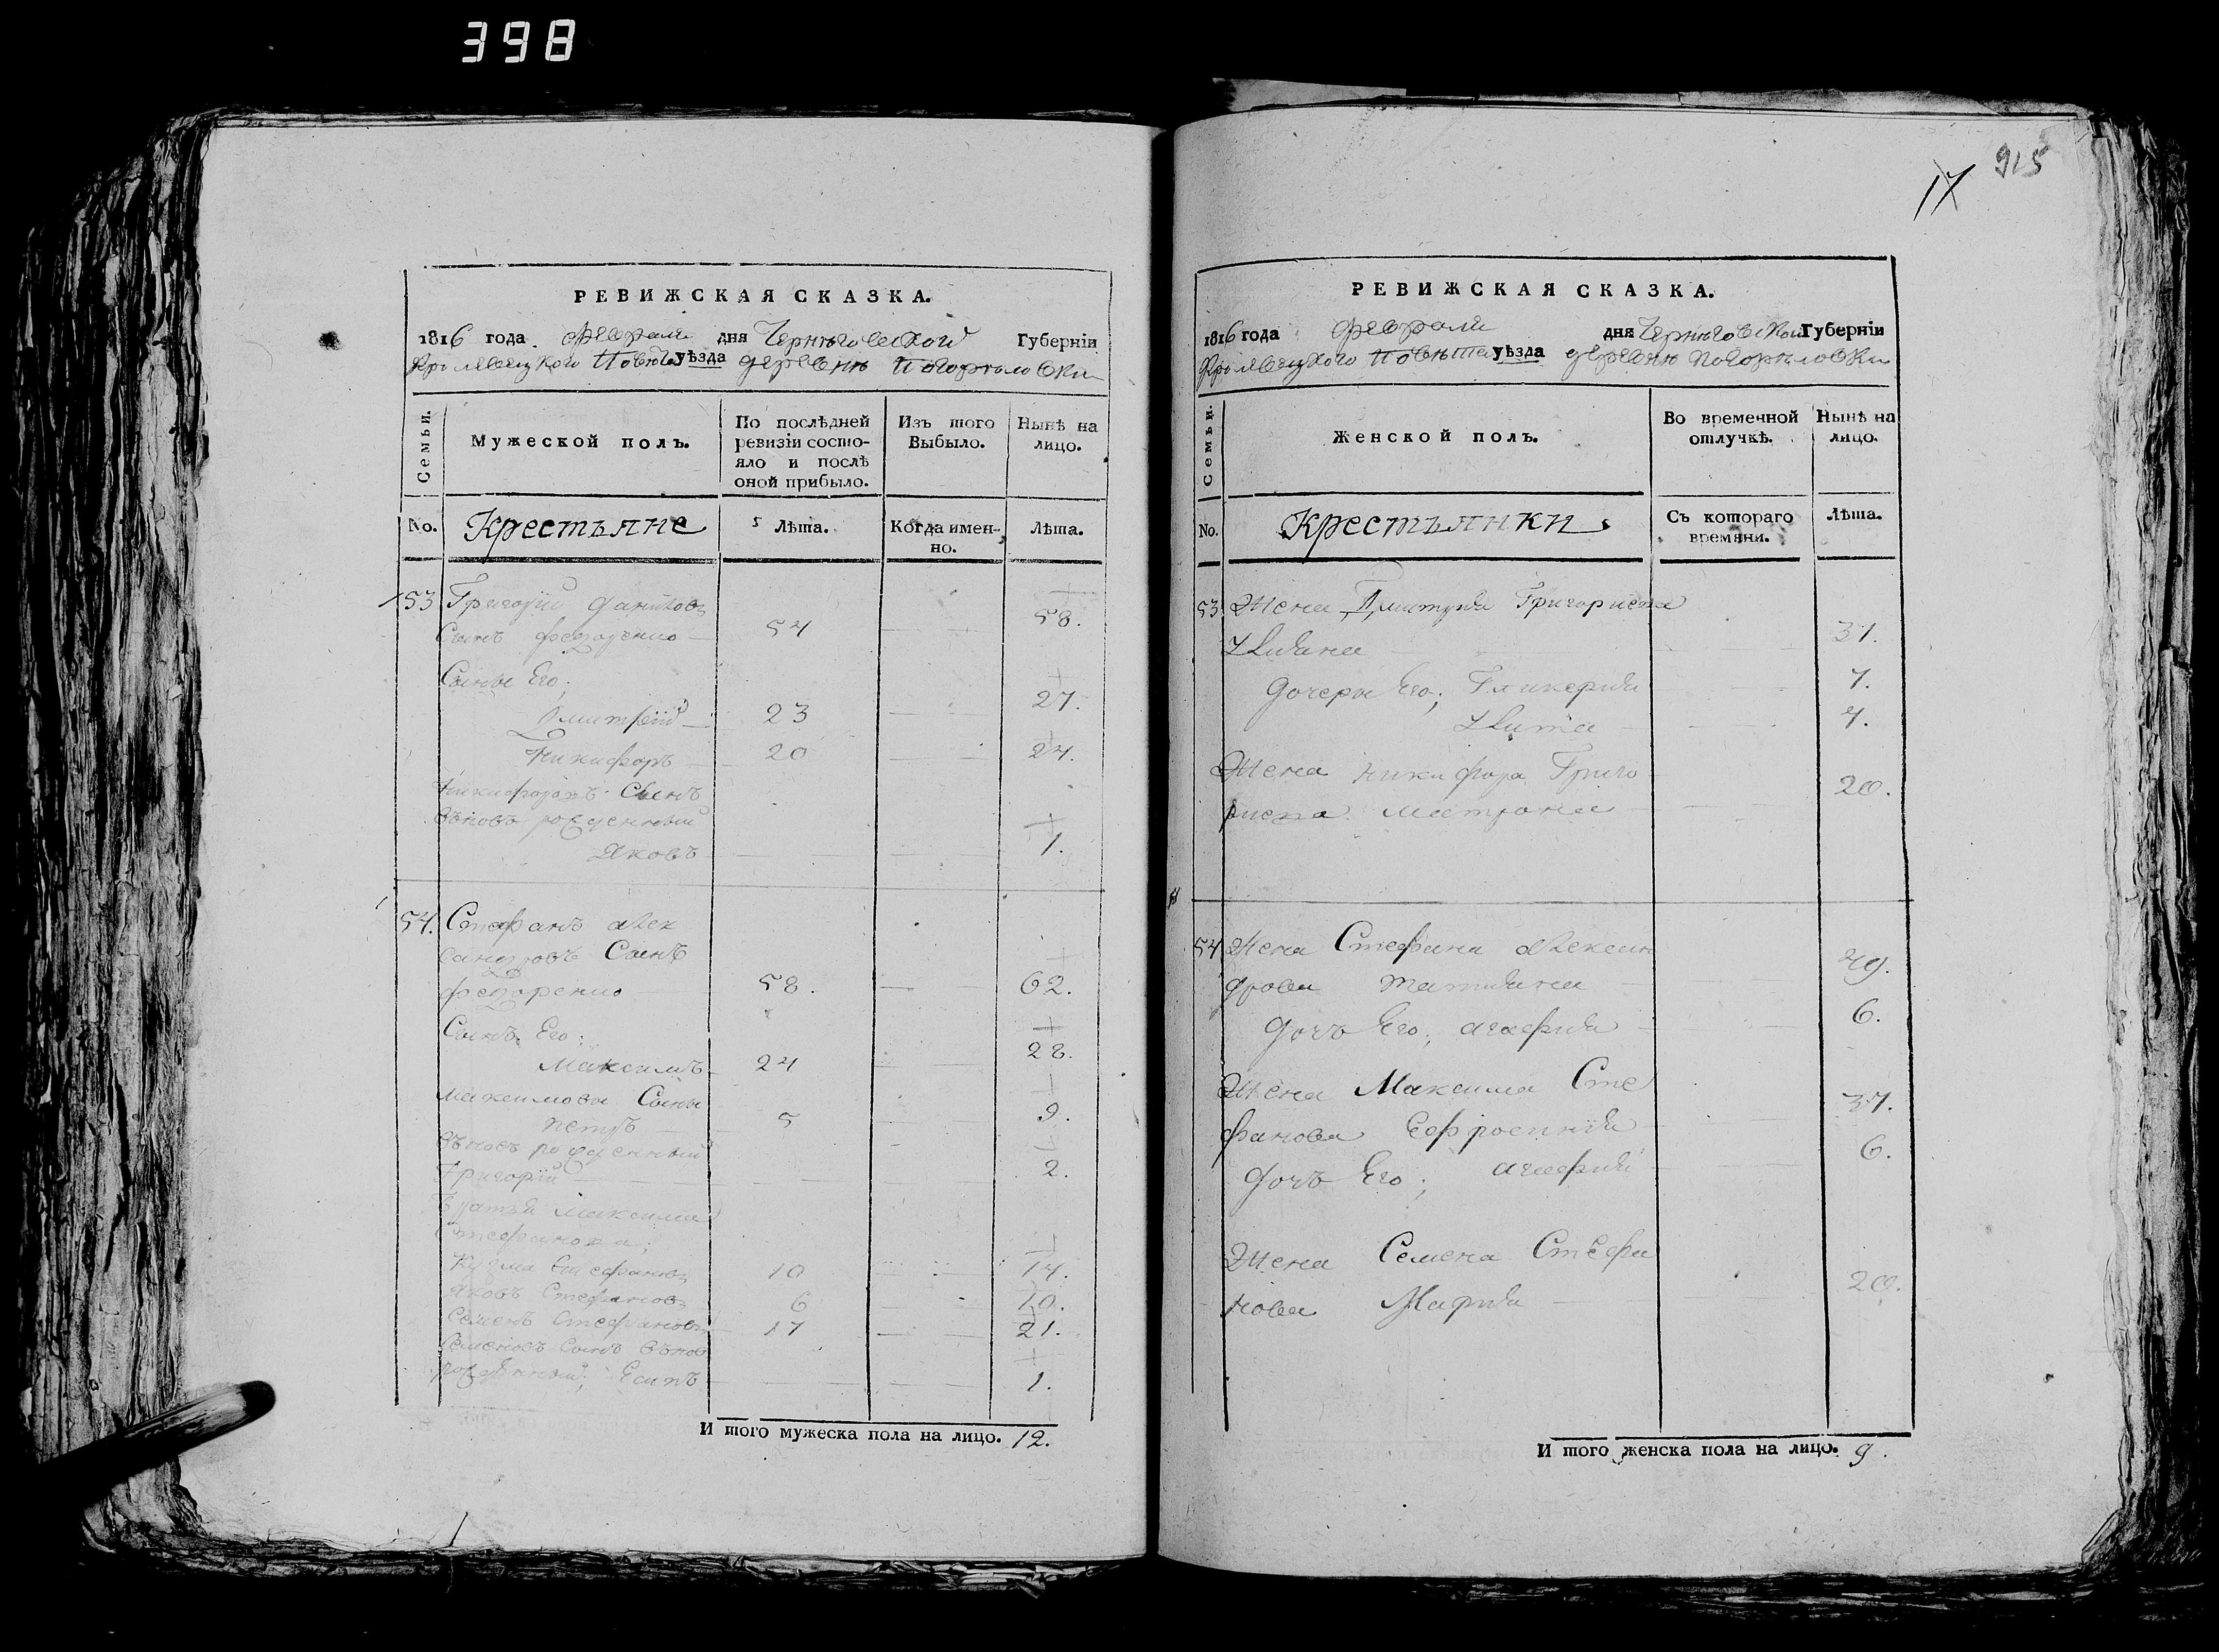 398
РЕВИЖСКАЯ СКАЗКА.
1816 года февраля дня Черниговской Губерніи
Кролевецкого Повета уѣзда деревнѣ Погорѣловки
Семьи.
Мужеской полъ.
По послѣдней ревизіи состояло и послѣ оной прибыло.
Изъ того Выбыло.
Нынѣ на лицо.
No.
Крестьяне
Лѣта.
Когда именно.
Лѣта.
53 Григорій Даниловъ
Сынъ Федоренко 54 58.
Сыны Его;
Дмитрій 23 27.
Никифоръ 20 24.
Никифоровъ Сынъ
вновь рожденный
Яковъ 1.
54. Стефанъ Алек
сандровъ Сынъ
Федоренко 58. 62.
Сынъ Его;
Максимъ 24 28.
Максимовы Сыны
Петръ 5 9.
вновь рожденный
Григорій 2.
Братья Максима
Стефанова;
Кузма Стефановъ 10 14.
Яковъ Стефановъ 6 10.
Семенъ Стефановъ 17 21.
Семеновъ Сынъ вновь
рожденный; Есипъ 1.
И того мужеска пола на лицо. 12.
915
17
РЕВИЖСКАЯ СКАЗКА.
1816 года февраля дня Черниговской Губерніи
Кролевецкого Повѣта уѣзда деревнѣ Погорѣловки
Семьи.
Женской полъ.
Во временной отлучкѣ.
Нынѣ на лицо.
No.
Крестьянки
Съ котораго времяни.
Лѣта.
53. Жена Дмитрия Григориева
Ульяна 31.
Дочери Его; Гликерия 7.
Улита 4.
Жена Никифора Григо
риева Матрона 20.
54 Жена Стефана Алексан
дрова Татияна 49.
Дочь Его; Агафия 6.
Жена Максима Сте
фанова Ефросиния 37.
Дочь Его; Агафия 6.
Жена Семена Стефа
нова Мария 20.
И того женска пола на лицо. 9.